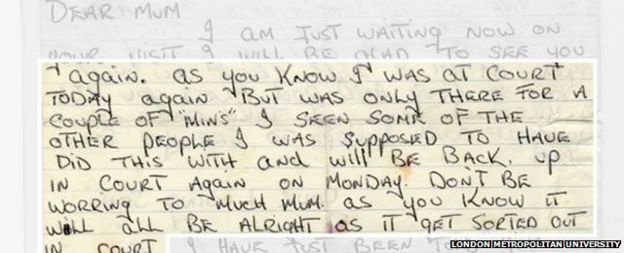 DEAR MUM
I AM JUST WAITING NOW ON
YOUR VISIT I WILL BE GLAD TO SEE YOU
again. as you KNOW I WAS AT COURT
TODAY again BUT WAS ONLY THERE FOR A
COUPLE OF "MINS" I SEEN SOME OF THE
OTHER PEOPLE I WAS SUPPOSED TO HAVE
DID THIS WITH and will BE BACK, up
IN COURT AGAIN ON MONDAY. DON'T BE
WORRING TO MUCH MUM. as you KNOW IT
WILL ALL BE ALRIGHT as IT GET SORTED OUT
IN COURT I HAVE JUST BEEN TO
LONDON METROPOLITAN UNIVERSITY